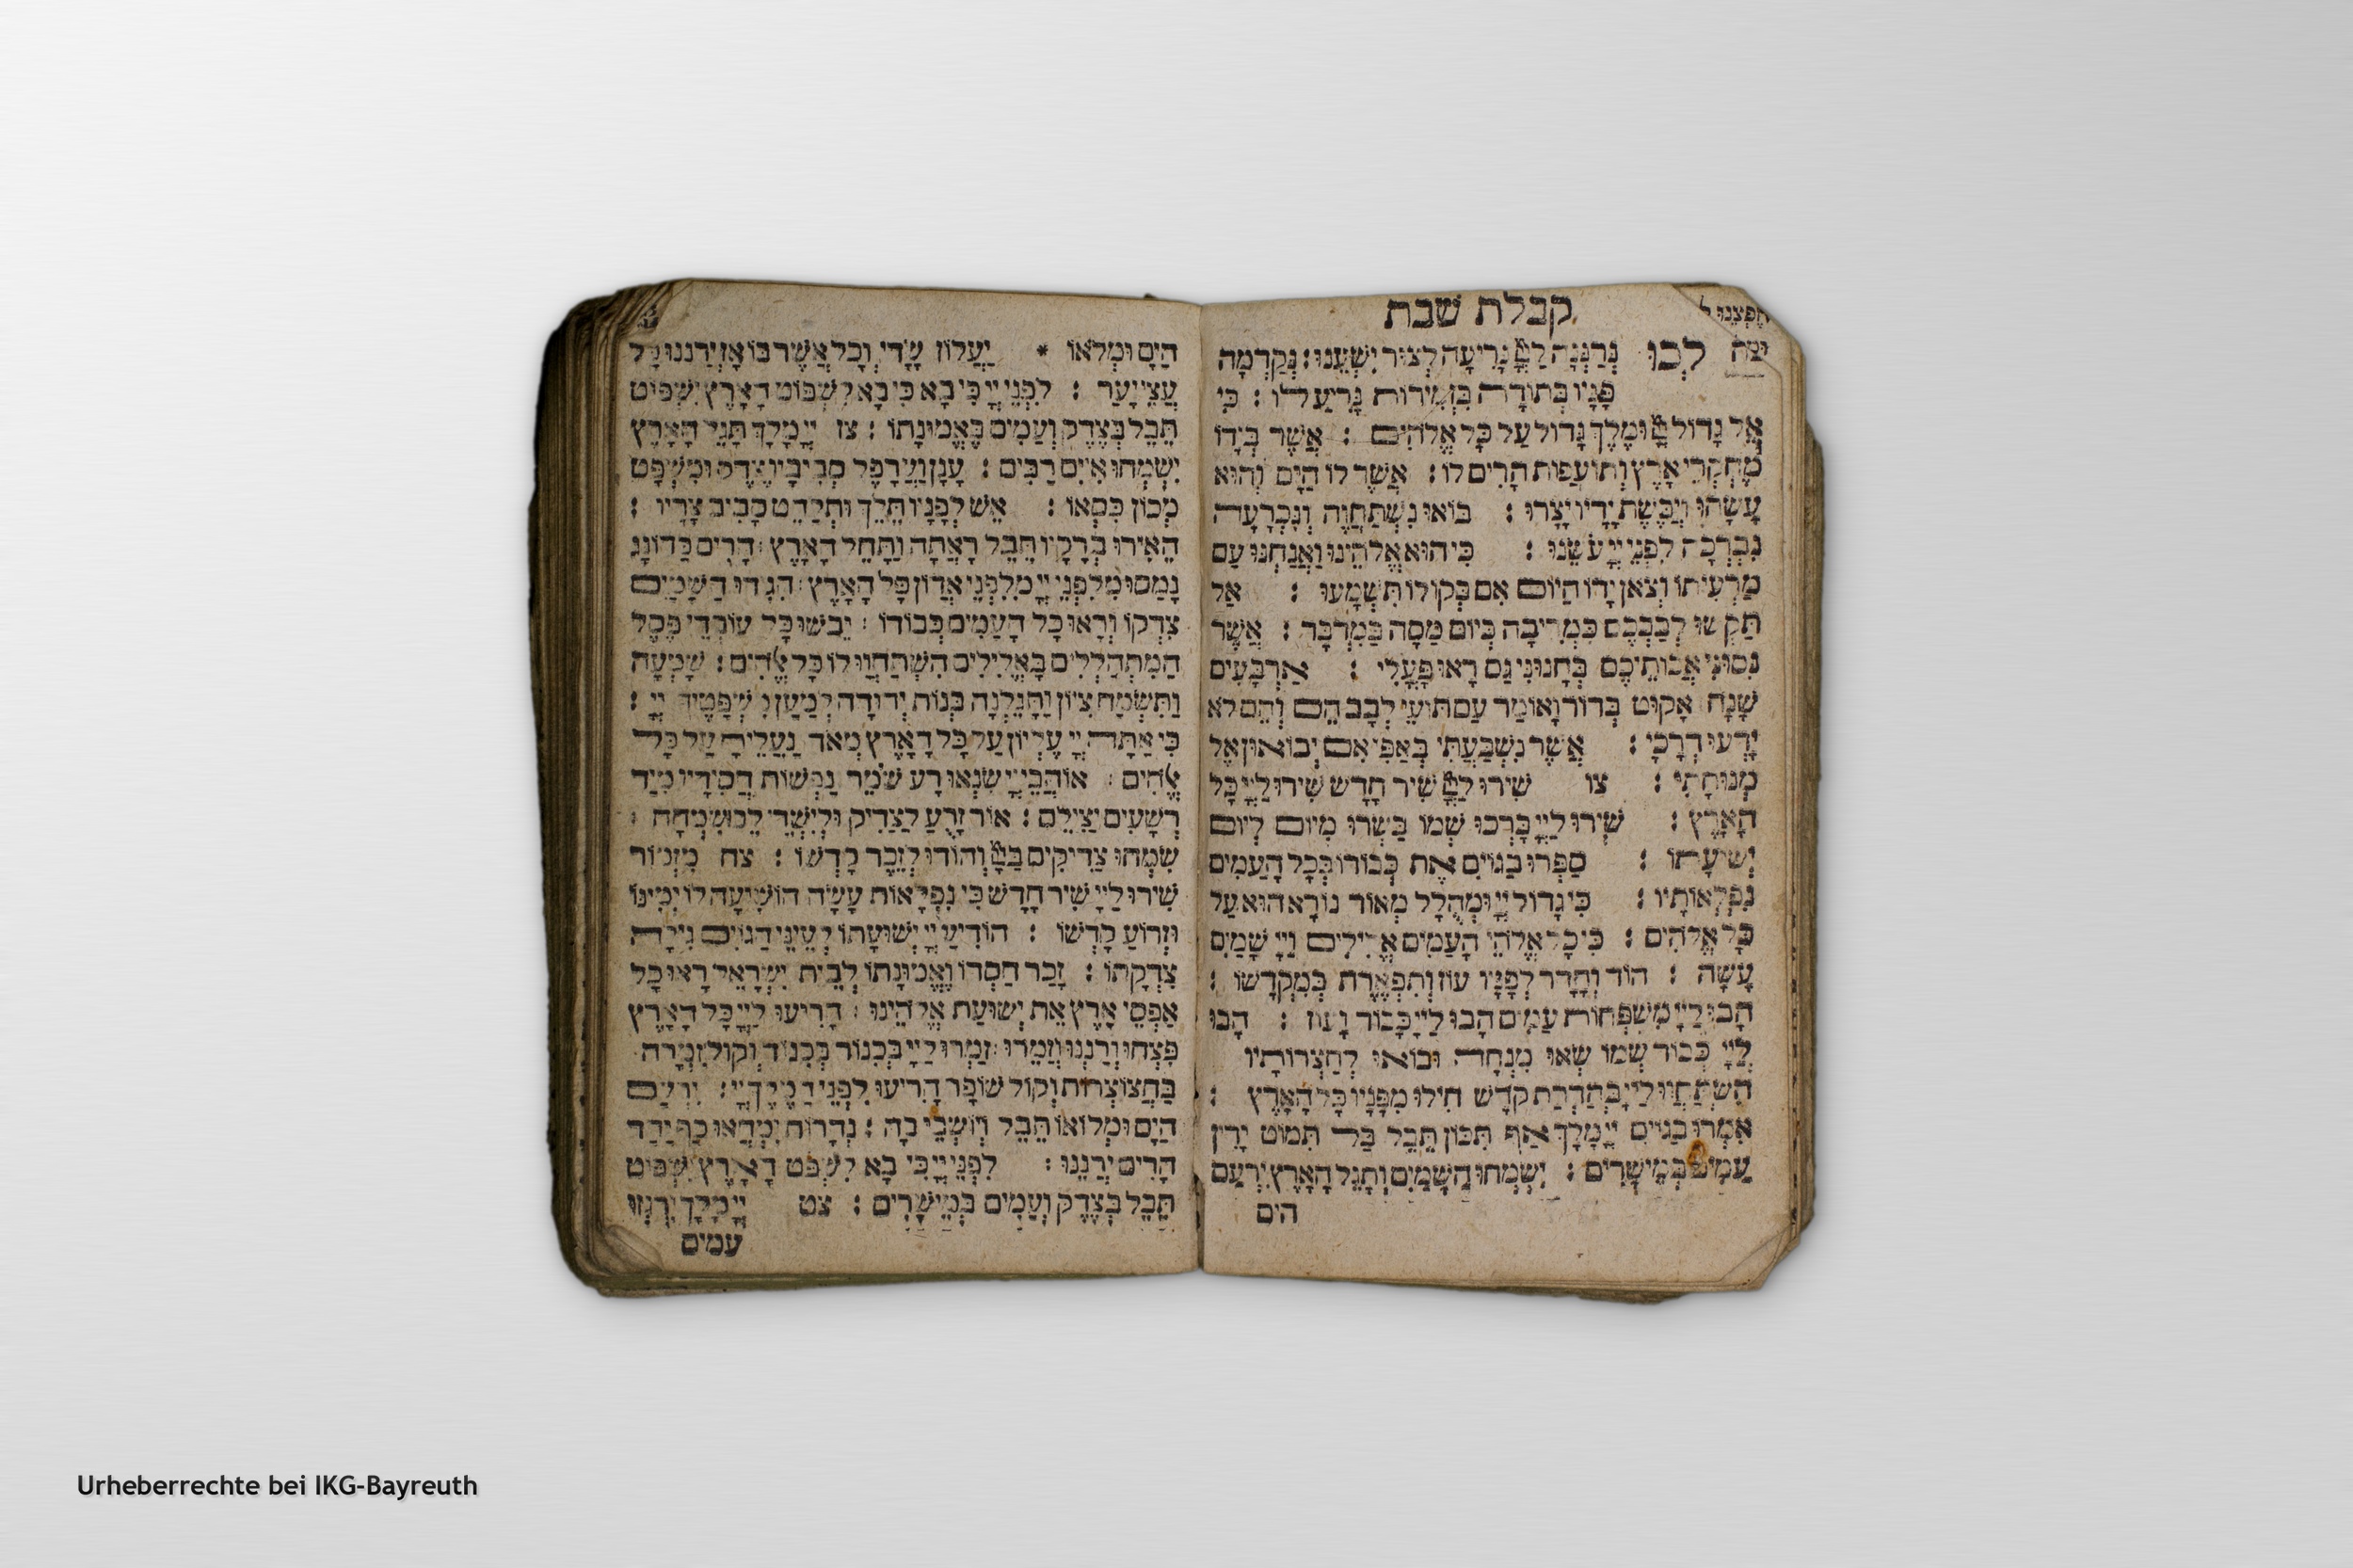 קבלת שבת
חפצנו ל
לְכוּ נְרַנְּנָה לַיְיָ נָרִיעָה לְצוּר יִשְׁעֵנוּ : נְקַדְּמָה
פָנָיו בְּתוֹדָה בִּזְמִירוֹת נָרִיעַ לוֹ : כִּי
אֵל גָּדוֹל יְיָ וּמֶלֶךְ גָּדוֹל עַל כָּל אֱלֹהִים : אֲשֶׁר בְּיָדוֹ
מֶחְקְרֵי אָרֶץ וְתוֹעֲפוֹת הָרִים לוֹ : אֲשֶׁר לוֹ הַיָּם וְהוּא
עָשָׂהוּ וְיַבֶּשֶׁת יָדָיו יָצָרוּ : בּוֹאוּ נִשְׁתַּחֲוֶה וְנִכְרָעָה
נִבְרְכָה לִפְנֵי יְיָ עֹשֵׂנוּ : כִּי הוּא אֱלֹהֵינוּ וַאֲנַחְנוּ עַם
מַרְעִיתוֹ וְצֹאן יָדוֹ הַיּוֹם אִם בְּקוֹלוֹ תִּשְׁמָעוּ : אַל
תַקְשׁוּ לְבַבְכֶם כִּמְרִיבָה כְּיוֹם מַסָּה בַּמִּדְבָּר : אֲשֶׁר
נִסּוּנִי אֲבוֹתֵיכֶם בְּחָנוּנִי גַּם רָאוּ פָעֳלִי : אַרְבָּעִים
שָׁנָה אָקוּט בְּדוֹר וָאוֹמַר עַם תּוֹעֵי לְבָב הֵם וְהֵם לֹא
יָדְעוּ דְרָכָי : אֲשֶׁר נִשְׁבַּעְתִּי בְאַפִּי אִם יְבוֹאוּן אֶל
מְנוּחָתִי : צו שִׁירוּ לַיְיָ שִׁיר חָדָשׁ שִׁירוּ לַיְיָ כָּל
הָאָרֶץ : שִׁירוּ לַיְיָ בָּרְכוּ שְׁמוֹ בַּשְּׂרוּ מִיּוֹם לְיוֹם
יְשׁוּעָתוֹ : סַפְּרוּ בַגּוֹיִם אֶת כְּבוֹדוֹ בְּכָל הָעַמִּים
נִפְלְאוֹתָיו : כִּי גָדוֹל יְיָ וּמְהֻלָּל מְאוֹד נוֹרָא הוּא עַל
כָּל אֱלֹהִים : כִּי כָּל אֱלֹהֵי הָעַמִּים אֱלִילִים וַיְיָ שָׁמַיִם
עָשָׂה : הוֹד וְהָדָר לְפָנָיו עוֹז וְתִפְאֶרֶת בְּמִקְדָּשׁוֹ :
הָבוּ לַיְיָ מִשְׁפְּחוֹת עַמִּים הָבוּ לַיְיָ כָּבוֹד וָעוֹז : הָבוּ
לַיְיָ כְּבוֹד שְׁמוֹ שְׂאוּ מִנְחָה וּבוֹאוּ לְחַצְרוֹתָיו
הִשְׁתַּחֲווּ לַיְיָ בְּהַדְרַת קֹדֶשׁ חִילוּ מִפָּנָיו כָּל הָאָרֶץ :
אִמְרוּ בַגּוֹיִם יְיָ מָלָךְ אַף תִּכּוֹן תֵּבֵל בַּל תִּמּוֹט יָדִין
עַמִּים בְּמֵישָׁרִים : יִשְׂמְחוּ הַשָּׁמַיִם וְתָגֵל הָאָרֶץ יִרְעַם
הים
הַיָּם וּמְלֹאוֹ * יַעֲלוֹז שָׂדַי וְכָל אֲשֶׁר בּוֹ אָז יְרַנְּנוּ כָּל
עֲצֵי יָעַר : לִפְנֵי יְיָ כִּי בָא כִּי בָא לִשְׁפּוֹט הָאָרֶץ יִשְׁפּוֹט
תֵּבֵל בְּצֶדֶק וְעַמִּים בֶּאֱמוּנָתוֹ : צז יְיָ מָלָךְ תָּגֵל הָאָרֶץ
יִשְׂמְחוּ אִיִּים רַבִּים : עָנָן וַעֲרָפֶל סְבִיבָיו צֶדֶק וּמִשְׁפָּט
מְכוֹן כִּסְאוֹ : אֵשׁ לְפָנָיו תֵּלֵךְ וּתְלַהֵט סָבִיב צָרָיו :
הֵאִירוּ בְרָקָיו תֵּבֵל רָאֲתָה וַתָּחֵל הָאָרֶץ : הָרִים כַּדּוֹנַג
נָמַסּוּ מִלִּפְנֵי יְיָ מִלִּפְנֵי אֲדוֹן כָּל הָאָרֶץ : הִגִּידוּ הַשָּׁמַיִם
צִדְקוֹ וְרָאוּ כָל הָעַמִּים כְּבוֹדוֹ : יֵבֹשׁוּ כָּל עוֹבְדֵי פֶסֶל
הַמִּתְהַלְלִים בָּאֱלִילִים הִשְׁתַּחֲווּ לוֹ כָּל אֱלֹהִים : שָׁמְעָה
וַתִּשְׂמַח צִיּוֹן וַתָּגֵלְנָה בְּנוֹת יְהוּדָה לְמַעַן מִשְׁפָּטֶיךָ יְיָ :
כִּי אַתָּה יְיָ עֶלְיוֹן עַל כָּל הָאָרֶץ מְאֹד נַעֲלֵיתָ עַל כָּל
אֱלֹהִים : אוֹהֲבֵי יְיָ שִׂנְאוּ רָע שֹׁמֵר נַפְשׁוֹת חֲסִידָיו מִיַּד
רְשָׁעִים יַצִּילֵם : אוֹר זָרֻעַ לַצַּדִּיק וּלְיִשְׁרֵי לֵב שִׂמְחָה :
שִׂמְחוּ צַדִּיקִים בַּיְיָ וְהוֹדוּ לְזֵכֶר קָדְשׁוֹ : צח מִזְמוֹר
שִׁירוּ לַיְיָ שִׁיר חָדָשׁ כִּי נִפְלָאוֹת עָשָׂה הוֹשִׁיעָה לוֹ יְמִינוֹ
וּזְרוֹעַ קָדְשׁוֹ : הוֹדִיעַ יְיָ יְשׁוּעָתוֹ לְעֵינֵי הַגּוֹיִם גִּילָּה
צִדְקָתוֹ : זָכַר חַסְדּוֹ וֶאֱמוּנָתוֹ לְבֵית יִשְׂרָאֵל רָאוּ כָל
אַפְסֵי אָרֶץ אֵת יְשׁוּעַת אֱלֹהֵינוּ : הָרִיעוּ לַיְיָ כָּל הָאָרֶץ
פִּצְחוּ וְרַנְּנוּ וְזַמֵּרוּ : זַמְּרוּ לַיְיָ בְּכִנּוֹר בְּכִנּוֹר וְקוֹל זִמְרָה
בַּחֲצוֹצְרוֹת וְקוֹל שׁוֹפָר הָרִיעוּ לִפְנֵי הַמֶּלֶךְ יְיָ : יִרְעַם
הַיָּם וּמְלוֹאוֹ תֵּבֵל וְיוֹשְׁבֵי בָהּ : נְהָרוֹת יִמְחֲאוּ כַף יַחַד
הָרִים יְרַנֵּנוּ : לִפְנֵי יְיָ כִּי בָא לִשְׁפֹּט הָאָרֶץ יִשְׁפּוֹט
תֵּבֵל בְּצֶדֶק וְעַמִּים בְּמֵישָׁרִים : צט יְיָ מָלָךְ יִרְגְּזוּ
עמים
Urheberrechte bei IKG-Bayreuth